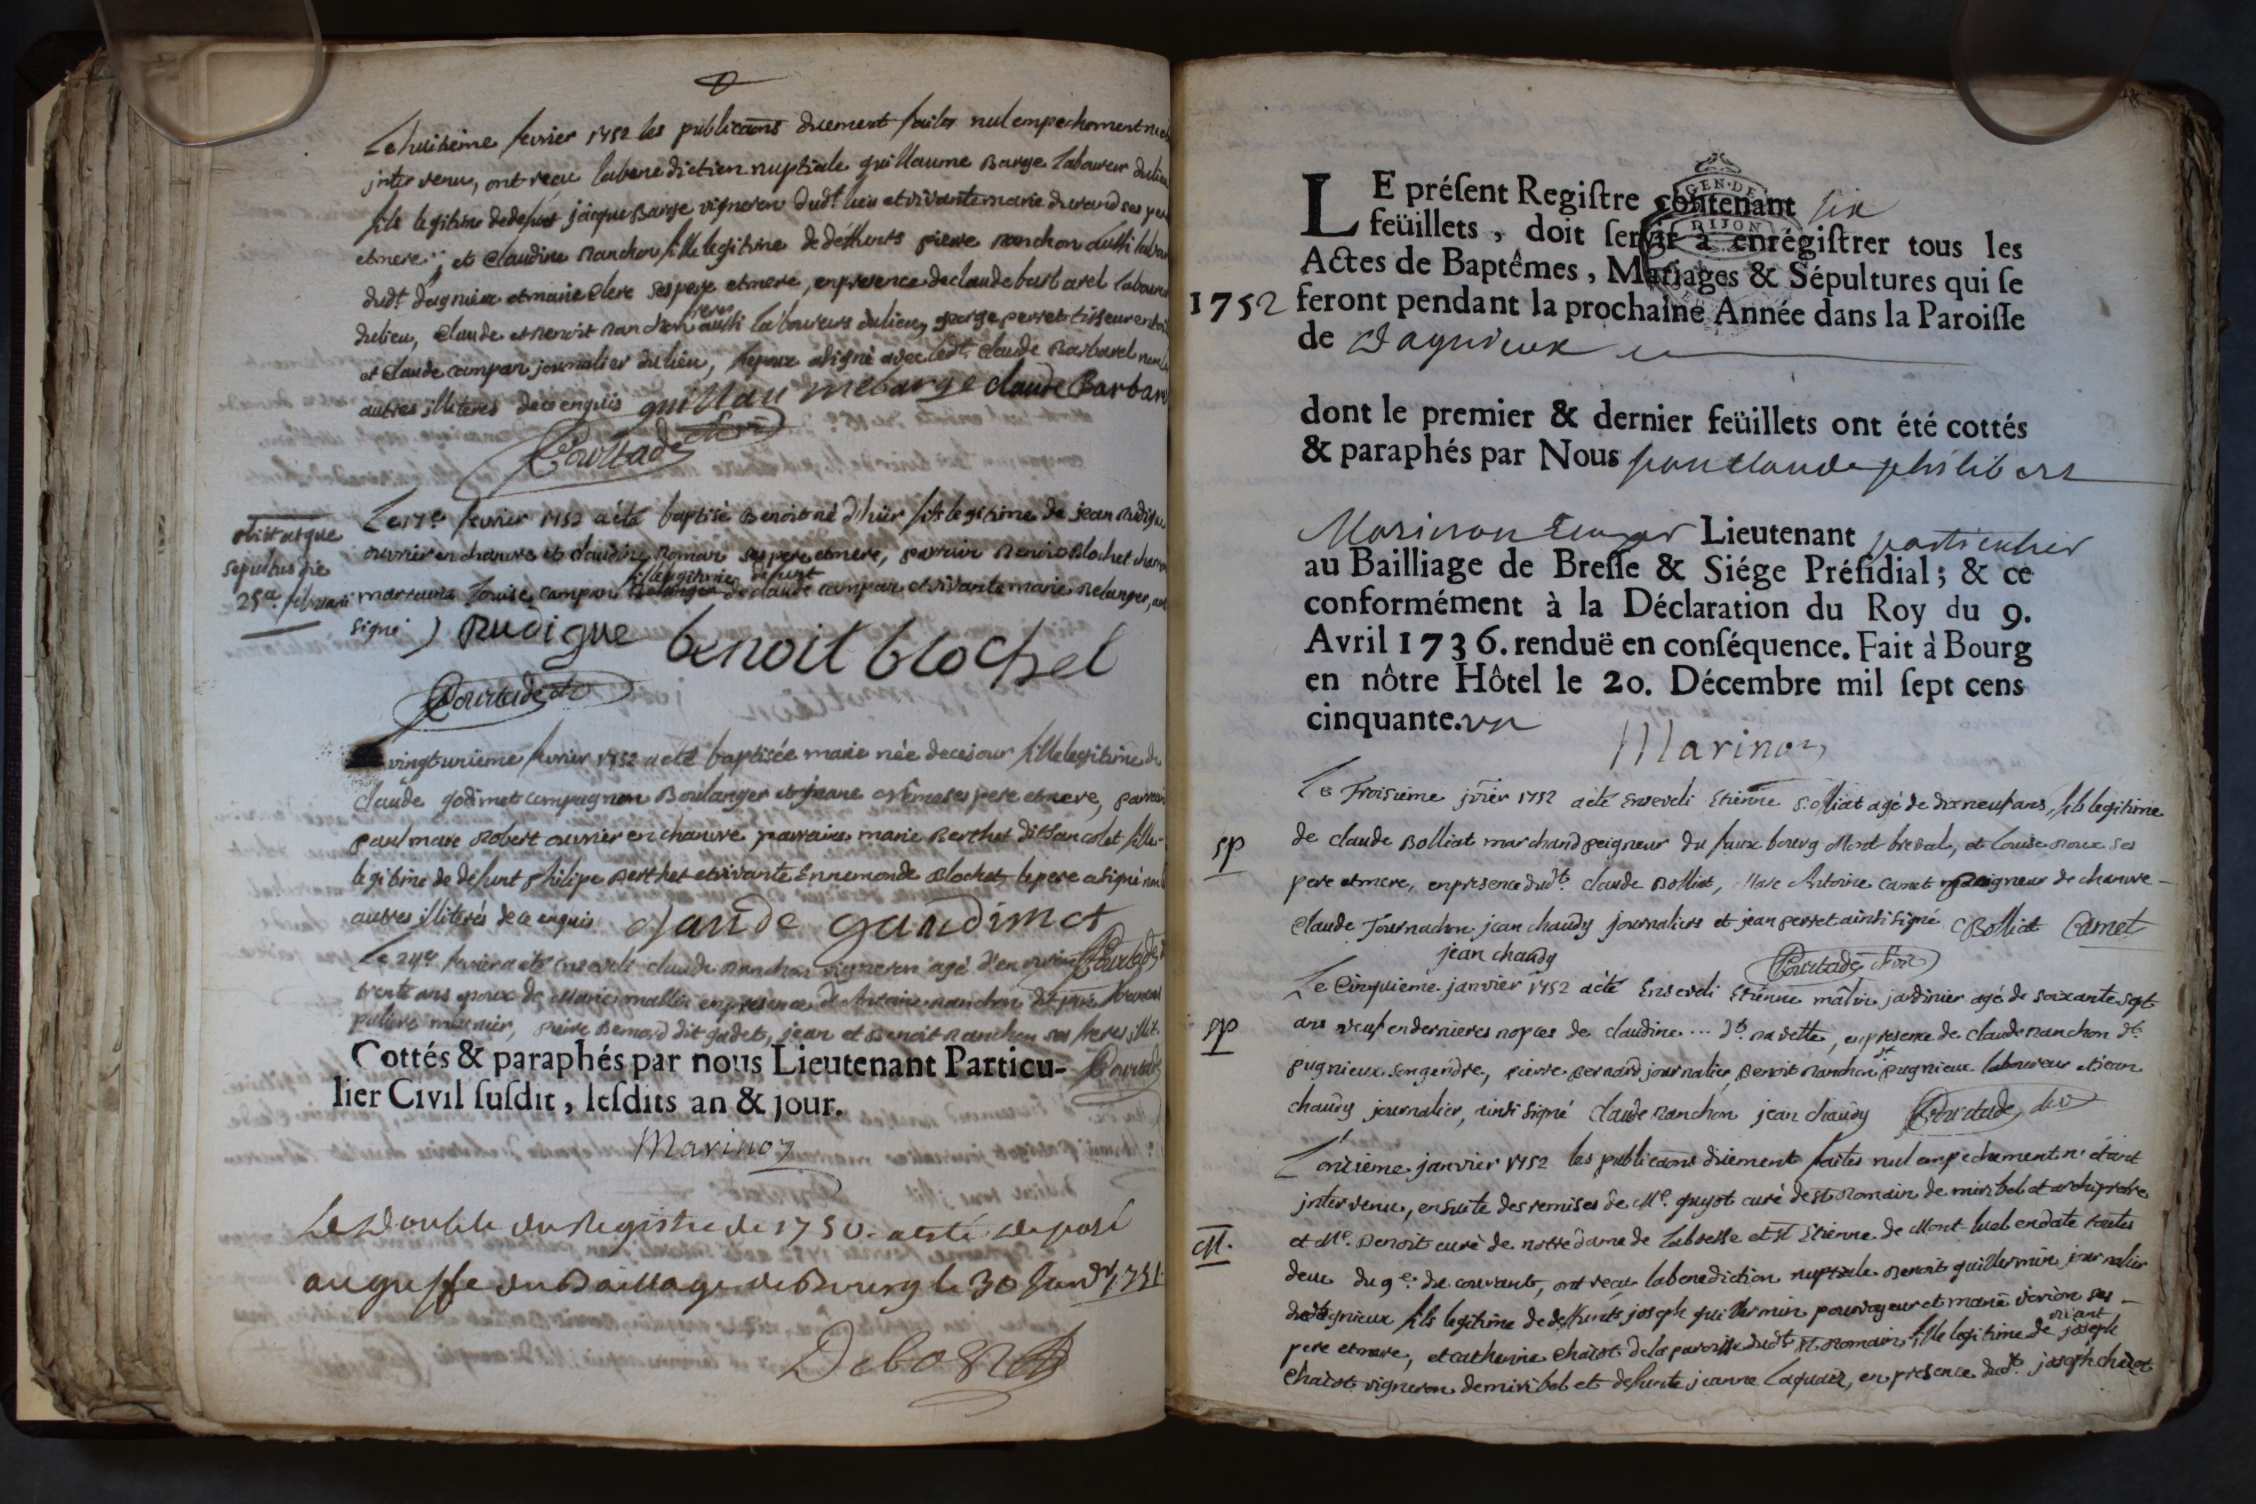 Le huitieme fevrier 1752 les publicaons düement faites nul empechement
intervenu, ont recu la benediction nuptiale guillaume Barge laboureur du lieu
fils legitime de defunt jacque Barge vigneron dudt lieu et vivante marie durand ses per
et mere, et Claudine Nanchon fille legitime de deffunts pierre nanchon aussi
dudt dagnieux et marie Clere ses pere et mere, en presence de claude barbarel laboureur
du lieu, Claude et Benoit nanchon freres aussi laboureurs du lieu, george perret tisseur
et Claude campan journalier du lieu, lepoux a signé avec ledt Claude Barbarel non les
autres illiteres de ce enquis guillaumebarge claude Barbare
Courtade
obiit atque
sepultus die
25a februarii
Le 17e fevrier 1752 a été baptisé Benoit né d'hier fils legitime de jean Rudigue
ouvrier en chanvre et claudine Roman ses pere et mere, parrain Benoit Blochet chanv
marraine Louise campan fille legitime de defunt claude campan et vivante marie Belanger, ont
signé Rudigue benoit blochet
Courtade
vingtunieme fevrier 1752 a eté baptisée marie née de ce jour fille legitime de
claude godimet compagnon Boulanger et jeane ses pere et mere, parrain
paul marc Robert ouvrier en chanvre marraine marie Berthet dit Sancolet fille
legitime de defunt philipe Berthet et vivante Ennemonde Blochet le pere a signé non les
autres illiterés de ce enquis claude gaudimet
Le 24e fevrier a eté enseveli claude nanchon vigneron agé d'environ Courtade
trente ans epoux de Marie mallin en presence d'Antoine nanchon
meunier, pierre Bernard dit gadet, jean et Benoit nanchon ses freres illit.
Courtade
Cottés & paraphés par nous Lieutenant Particu-
lier Civil ſuſdit, leſdits an & jour.
Marinon
Le Double du Registre de 1750. a esté deposé
au greffe du Baillage de Bourg le 30 Janvr 1751
LE préſent Regiſtre contenant six
feüillets, doit ſervir à enrégiſtrer tous les
Actes de Baptêmes, Mariages & Sépultures qui ſe
1752 feront pendant la prochaine Année dans la Paroiſſe
de Dagnieux
GEN. DE
DIJON
dont le premier & dernier feüillets ont été cottés
& paraphés par Nous jean claude philibert
Marinon Lieutenant particulier
au Bailliage de Breſſe & Siége Préſidial; & ce
conformément à la Déclaration du Roy du 9.
Avril 1736. renduë en conſéquence. Fait à Bourg
en nôtre Hôtel le 20. Décembre mil ſept cens
cinquante.un
Marinon
Le Troisieme jvier 1752 a été Enseveli Etienne Bolliat agé de dix neuf ans, fils legitime
sp
de claude Bolliat marchand peigneur du faux bourg Mont breval, et Louise Roux ses
pere et mere, en presence dudt. claude Bolliat, Marc Antoine Camet peigneur de chanvre
Claude Tournachon jean chaudy journaliers et jean perret ainsi signé CBolliat Camet
jean chaudy Courtade
Le Cinquiéme janvier 1752 a été Enseveli Etienne mâlin jardinier agé de soixante sept
sp
ans veuf en dernieres nopces de claudine ... dt. navette, en presence de claude nanchon dt.
pugnieux son gendre, pierre Bernard journalier, Benoit nanchon dt pugnieux laboureur et jean
chaudy journalier, ainsi signé claude nanchon jean chaudy Courtade
L'onzieme janvier 1752 les publicaons düement faites nul empechement n'étant
intervenu, ensuite des remises de Me. guyot curé de st Romain de miribel et archiprêtre
M.
et Me. Benoit curé de notre dame de labresse et st Etienne de Mont-luel en date toutes
deux du 9e. du courant, ont recu la benediction nuptiale Benoit guillermin journalier
de dagnieux fils legitime de deffunts joseph guillermin pourvoyeur et marie verion ses
pere et mere, et catherine chaist de la paroisse dudt St Romain, fille legitime de vivant joseph
chaist vigneron de miribel et defunte jeanne Laguaiz, en presence dudt. joseph chaist